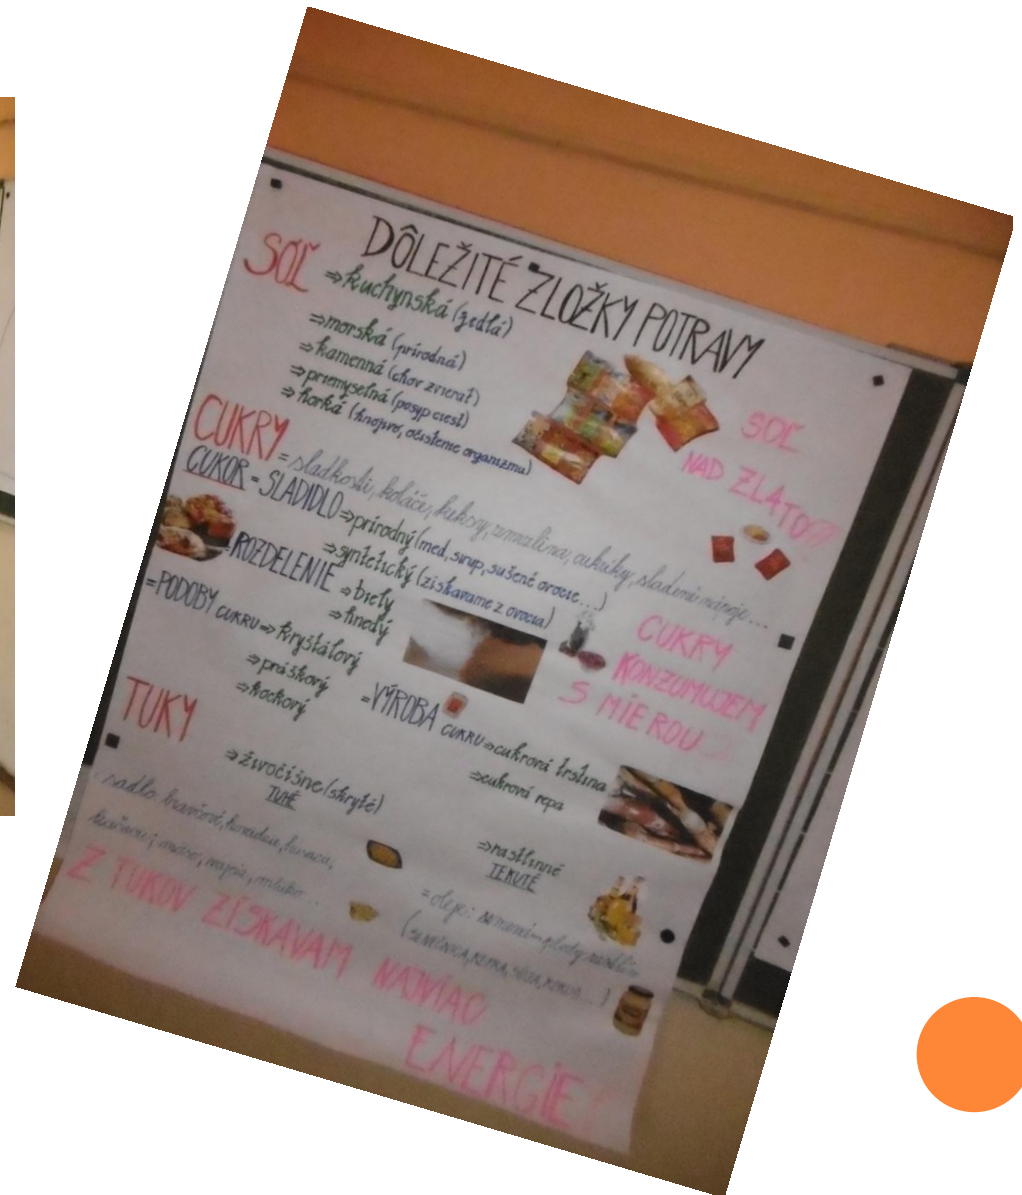 DÔLEŽITÉ ZLOŽKY POTRAVY
SOĽ
⇒ kuchynská (jedlá)
⇒ morská (prírodná)
⇒ kamenná (chov zvierat)
⇒ priemyselná (posyp ciest)
⇒ horká (hnojivo, očistenie organizmu)
SOĽ
NAD ZLATO
CUKRY = sladkosti, koláče, keksy, zmrzlina, cukríky, sladené nápoje...
CUKOR = SLADIDLO ⇒ prírodný (med, sirup, sušené ovocie...)
⇒ syntetický (získavame z ovocia)
= ROZDELENIE ⇒ biely
⇒ hnedý
= PODOBY CUKRU ⇒ kryštálový
⇒ práškový
⇒ kockový
CUKRY
KONZUMUJEM
S MIEROU
= VÝROBA CUKRU ⇒ cukrová trstina
⇒ cukrová repa
TUKY
⇒ živočíšne (skryté)
TUHÉ
sadlo: bravčové, hovädzie, husacie,
mäso, mlieko...
⇒ rastlinné
TEKUTÉ
= oleje: semená plody rastlín
(SLNEČNICA, REPKA, SÓJA, KOKOS...)
Z TUKOV ZÍSKAVAM NAJVIAC
ENERGIE